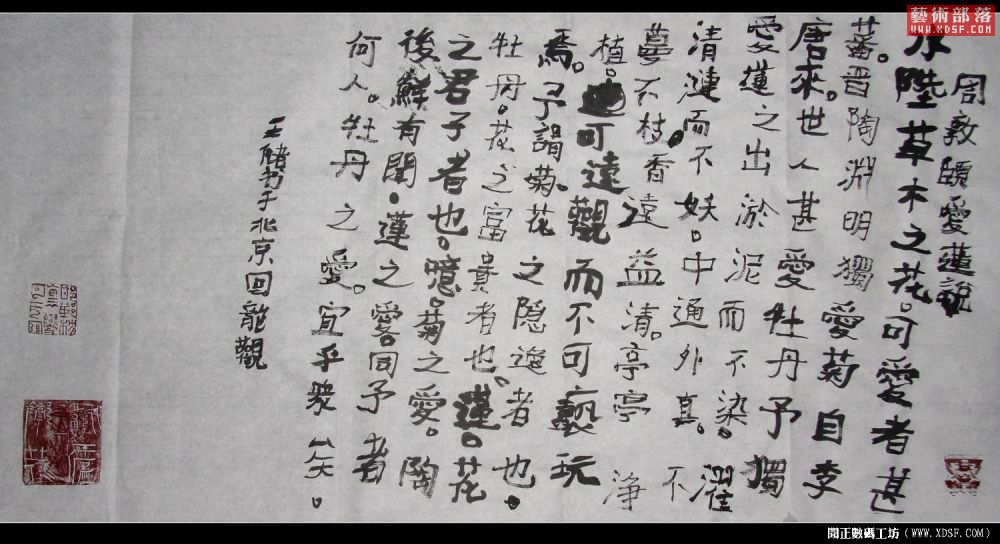 藝術部落
WWW.XDSF.COM
周敦頤愛蓮說
水陸草木之花。可愛者甚
蕃。晉陶淵明獨愛菊自李
唐來。世人甚愛牡丹予獨
愛蓮之出淤泥而不染。濯
清漣而不妖。中通外直。不
蔓不枝。香遠益清。亭亭淨
植。可遠觀而不可褻玩
焉。予謂菊。花之隱逸者也。
牡丹。花之富貴者也。蓮。花
之君子者也。噫。菊之愛。陶
後鮮有聞。蓮之愛同予者
何人。牡丹之愛。宜乎眾矣。
王书于北京回龍觀
閱正數碼工坊（WWW.XDSF.COM）